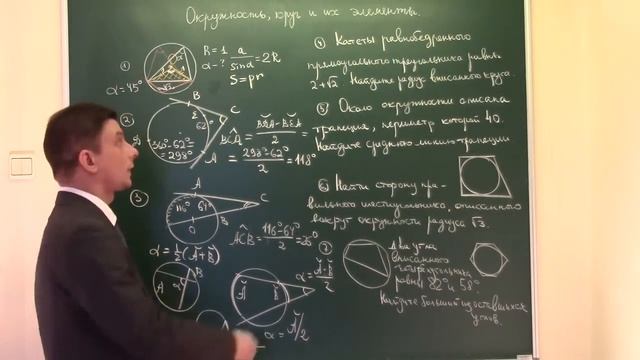 Окружность, круг и их элементы.
①
R=1
α-?
a/sinα = 2R
S=pr
α=45°
②
B
C
E
62°
360°-62°=
=298°
BCA = (BDA-BEA)/2 =
= (298°-62°)/2 = 118°
A
③
A
C
116°
64°
O
B
ACB = (116°-64°)/2 = 26°
α = 1/2(A+B)
A
α
B
A
B
α = (A-B)/2
α = A/2
④ Катеты равнобедренного
прямоугольного треугольника равны
2+√2. Найдите радиус вписанного круга.
⑤ Около окружности описана
трапеция, периметр которой 40.
Найдите среднюю линию трапеции
⑥ Найти сторону пра-
вильного шестиугольника, описанного
вокруг окружности радиуса √3.
⑦
Два угла
вписанного
четырёхугольника
равны 82° и 58°
Найдите больший из оставшихся
углов.